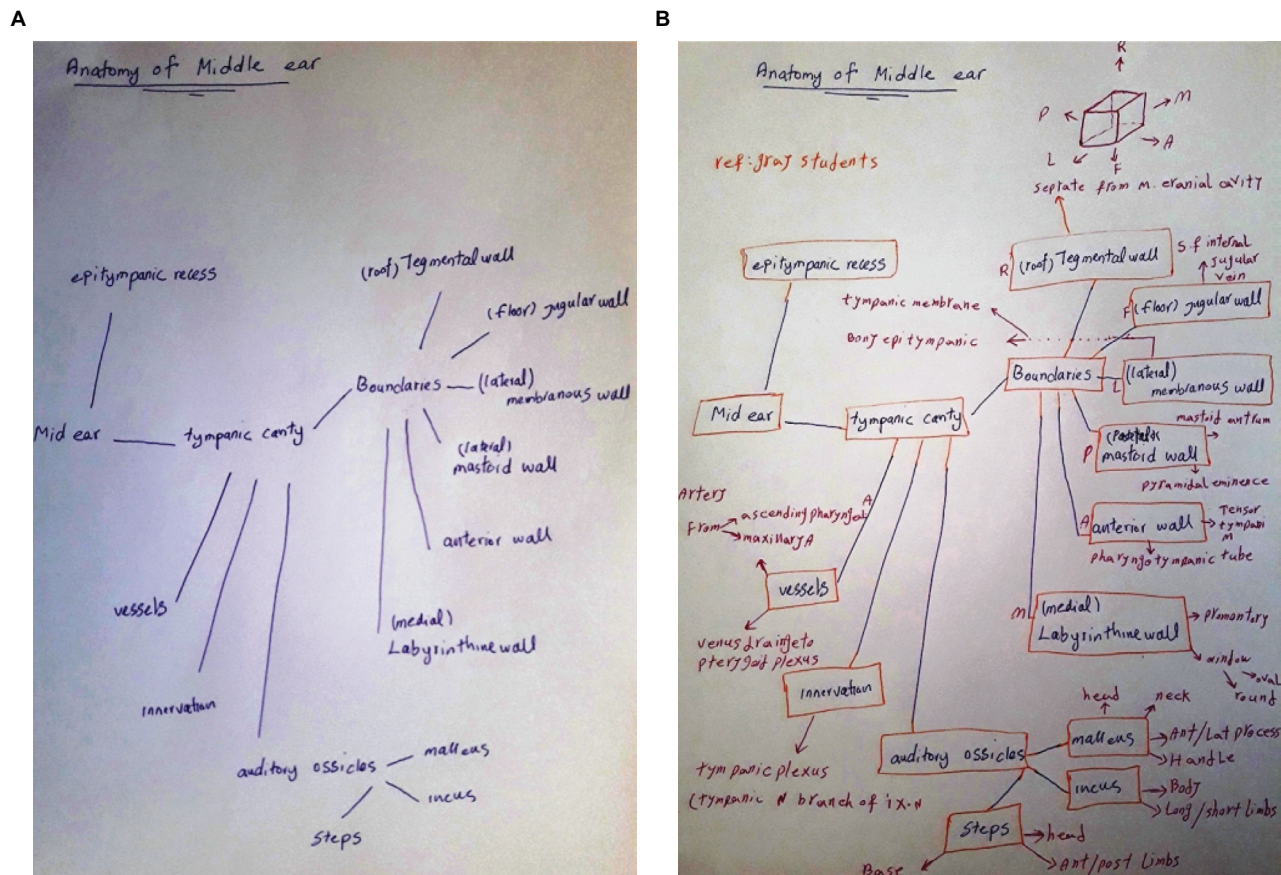 A
Anatomy of Middle ear
epitympanic recess
(roof) Tegmental wall
(floor) jugular wall
Boundaries
(lateral)
membranous wall
Mid ear
tympanic canty
(lateral)
mastoid wall
anterior wall
vessels
(medial)
Labyrinthine wall
innervation
auditory ossicles
malleus
incus
steps
B
Anatomy of Middle ear
R
P
M
A
L
F
ref: gray students
septate from m. cranial cavity
epitympanic recess
R
(roof) Tegmental wall
S.f internal
jugular
vein
F
(floor) jugular wall
tympanic membrane
Bony epitympanic
Boundaries
L
(lateral)
membranous wall
Mid ear
tympanic canty
mastoid antrum
P
mastoid wall
pyramidal eminence
Artery
From
ascending pharyngeal
A
maxillary A
A
anterior wall
Tensor
tympani
M
pharyngotympanic tube
vessels
venus drainge to
pterygoid plexus
M
(medial)
Labyrinthine wall
promontory
window
oval
round
innervation
tympanic plexus
(tympanic N branch of ix.N
auditory ossicles
malleus
head
neck
Ant/Lat process
Handle
incus
Body
Long/short limbs
steps
head
Base
Ant/post Limbs